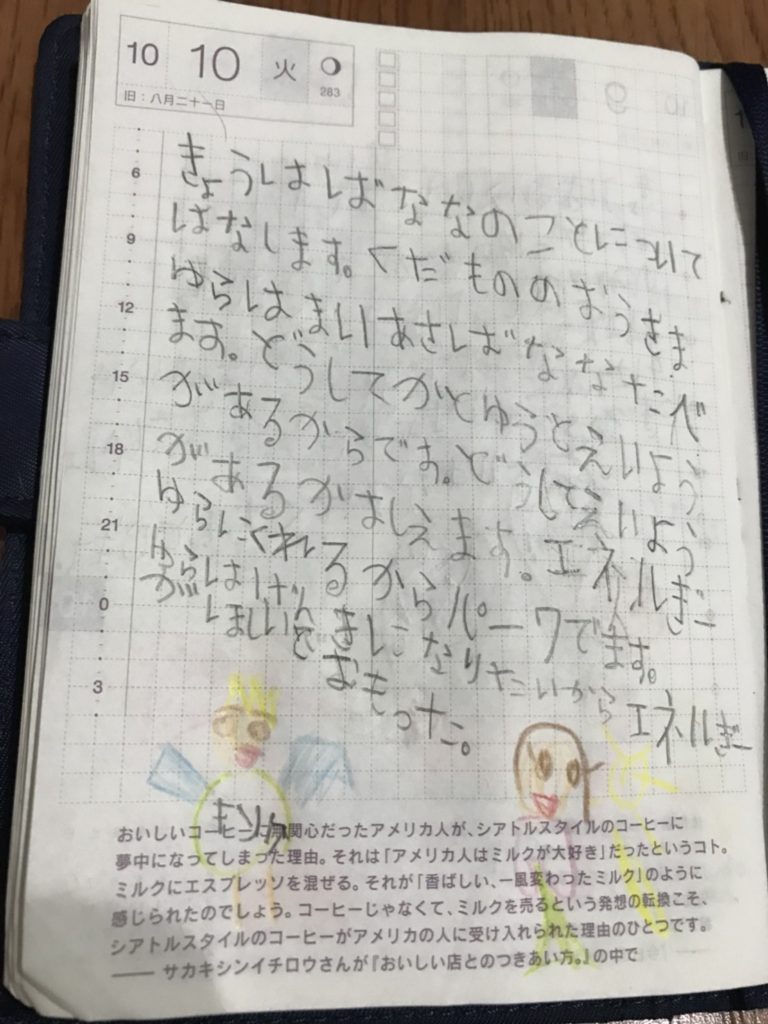 10 10 火
283
旧：八月二十一日
6
9
12
15
18
21
0
3
きょうはばななのことについて
はなします。くだものの おうさま
ゆらはまいあさばななたべ
ます。どうしてかとゆうとえいよう
があるからです。どうしてえいよう
があるかは いえます。エネルぎー
ゆらにくれるからパーワでます。
ゆらはげんきになりたいから エネルぎー
がほしいとおもった。
おいしいコーヒーに無関心だったアメリカ人が、シアトルスタイルのコーヒーに
夢中になってしまった理由。それは「アメリカ人はミルクが大好き」だったというコト。
ミルクにエスプレッソを混ぜる。それが「香ばしい、一風変わったミルク」のように
感じられたのでしょう。コーヒーじゃなくて、ミルクを売るという発想の転換こそ、
シアトルスタイルのコーヒーがアメリカの人に受け入れられた理由のひとつです。
―― サカキシンイチロウさんが『おいしい店とのつきあい方。』の中で